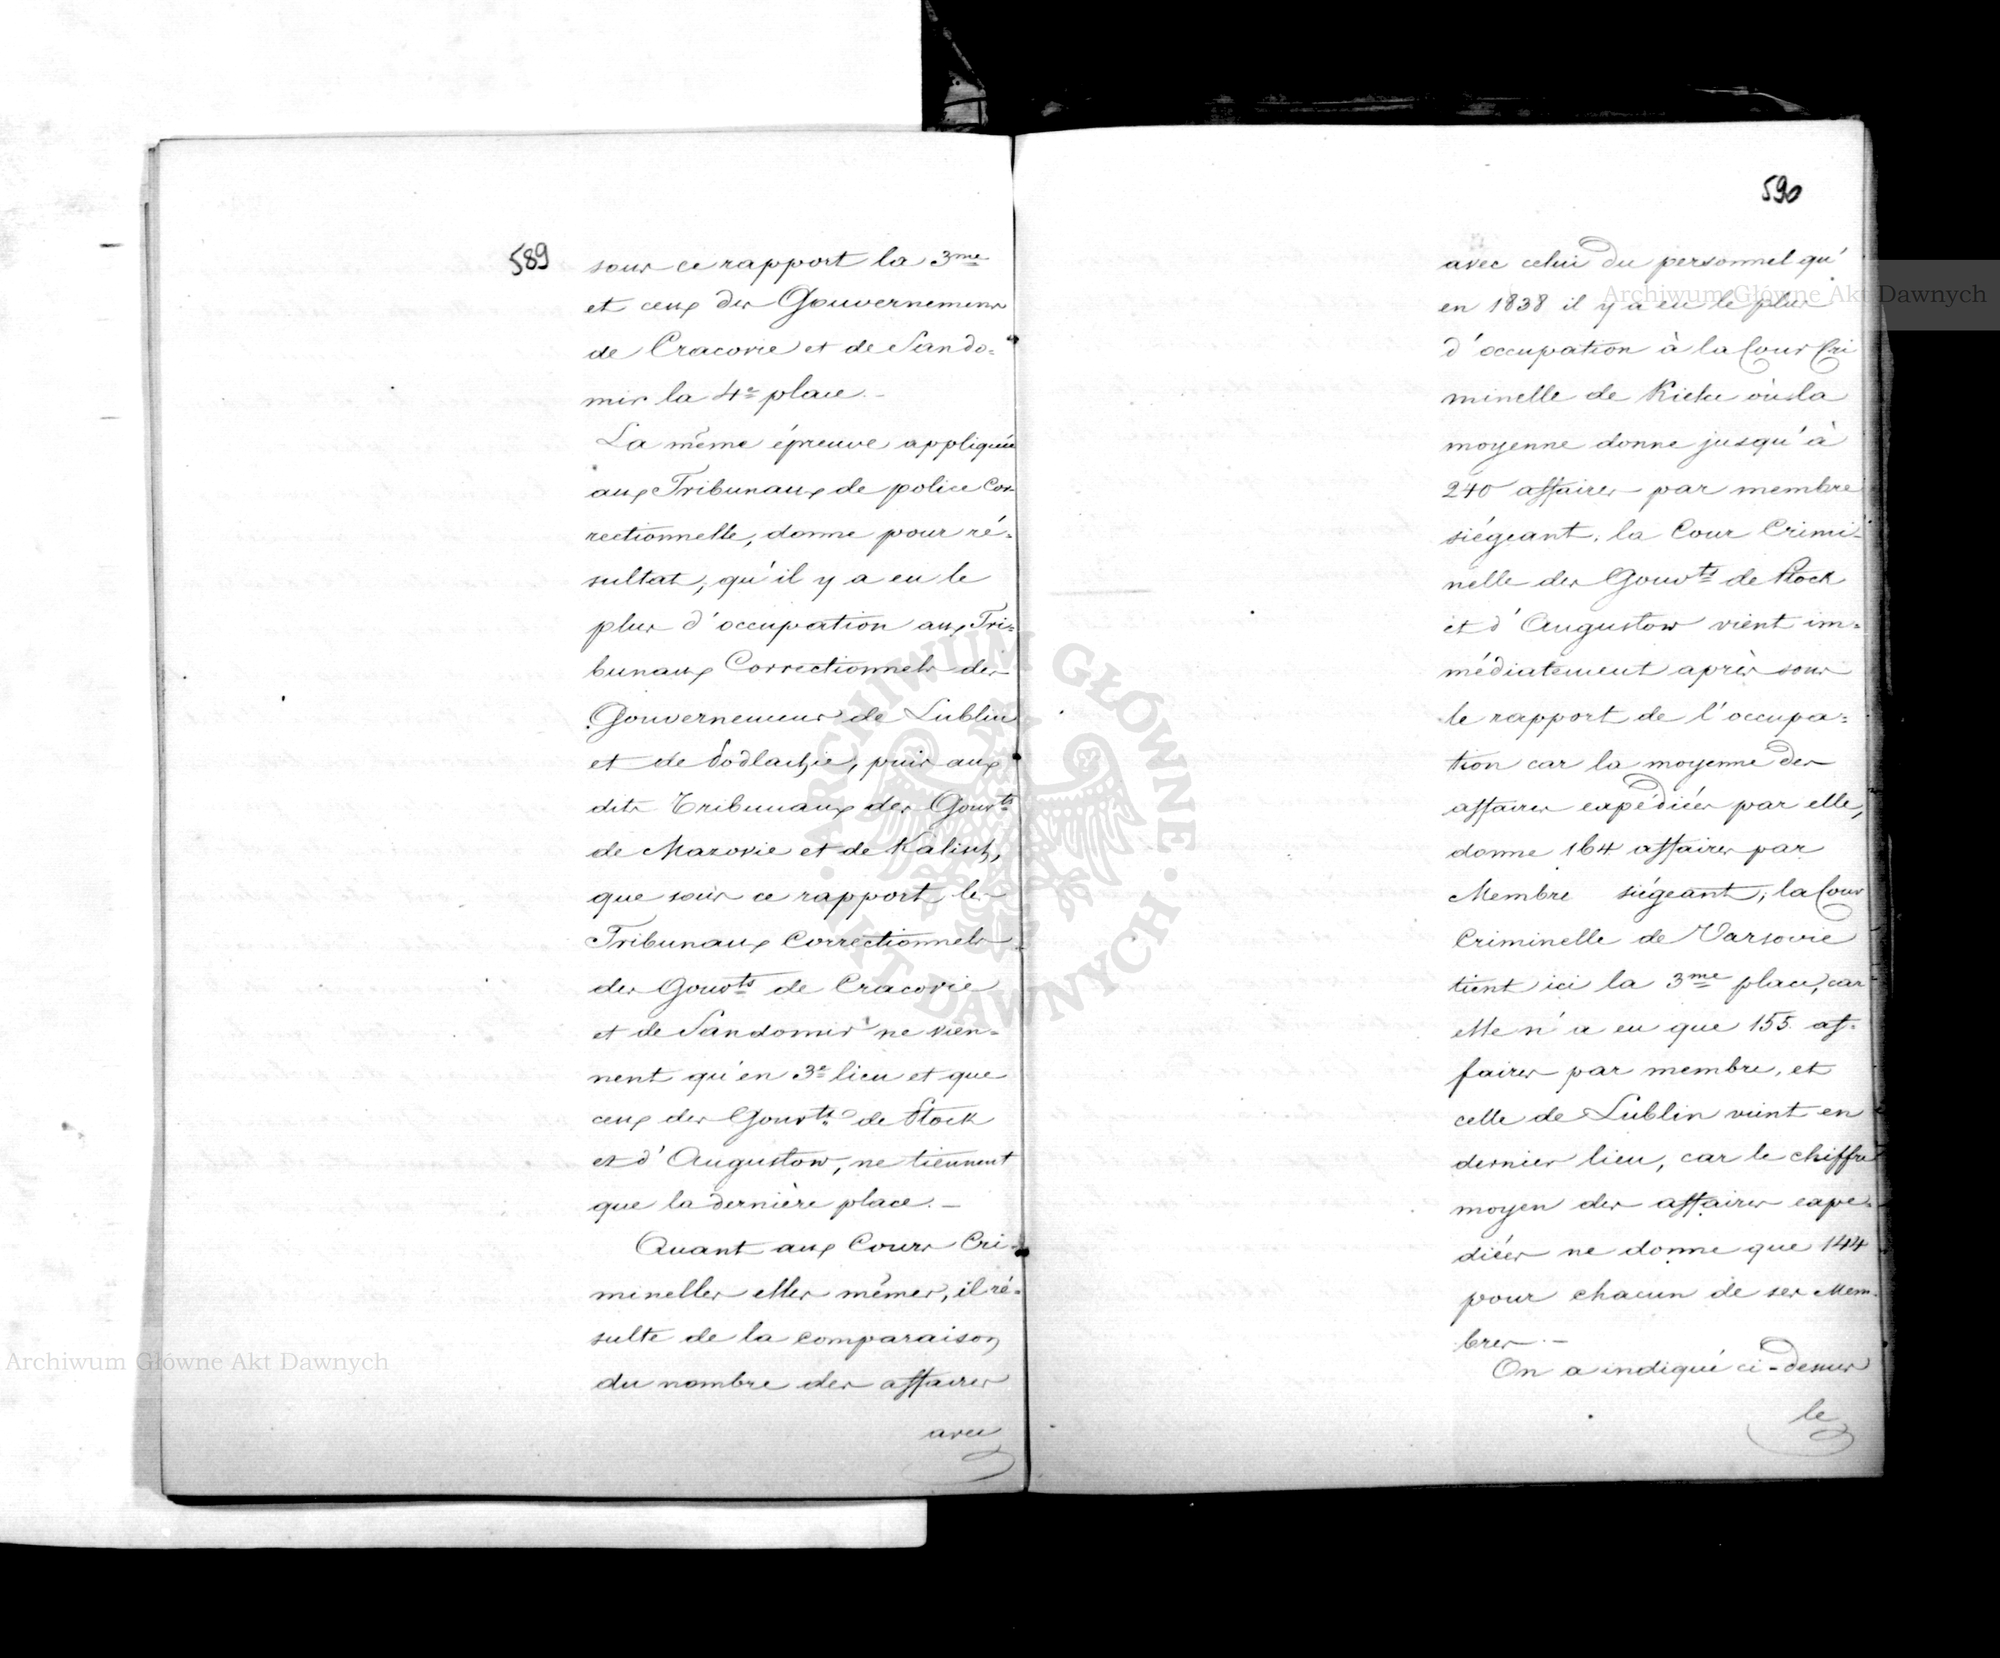 589
sous ce rapport la 3me
et ceux des Gouvernemens
de Cracovie et de Sando=
mir la 4e place. –
La même épreuve appliquée
aux Tribunaux de police Cor-
rectionnelle, donne pour ré=
sultat, qu'il y a eu le
plus d'occupation aux Tri=
bunaux Correctionnels des
Gouvernemens de Lublin
et de Podlachie, puis aux
dits Tribunaux des Gouvts
de Mazovie et de Kalisch,
que sous ce rapport les
Tribunaux Correctionnels
des Gouvts de Cracovie
et de Sandomir ne vien=
nent qu'en 3e lieu et que
ceux des Gouvts de Plock
et d'Augustow, ne tiennent
que la dernière place. –
Quant aux Cours Cri-
minelles elles mêmes, il ré=
sulte de la comparaison
du nombre des affaires
avec
590
avec celui du personnel qu'
en 1838 il y a eu le plus
d'occupation à la Cour Cri
minelle de Kielce où la
moyenne donne jusqu'à
240 affaires par membre
siégeant, la Cour Crimi=
nelle des Gouvts de Plock
et d'Augustow vient im=
médiatement après sous
le rapport de l'occupa=
tion car la moyenne des
affaires expédiées par elle,
donne 164 affaires par
Membre siégeant; la Cour
Criminelle de Varsovie
tient ici la 3me place, car
elle n'a eu que 155 af-
faires par membre, et
celle de Lublin vient en
dernier lieu, car le chiffre
moyen des affaires expé-
diées ne donne que 144
pour chacun de ses Mem-
bres. –
On a indiqué ci-dessus
le
Archiwum Główne Akt Dawnych
Archiwum Główne Akt Dawnych
ARCHIWUM GŁÓWNE · AKT DAWNYCH ·